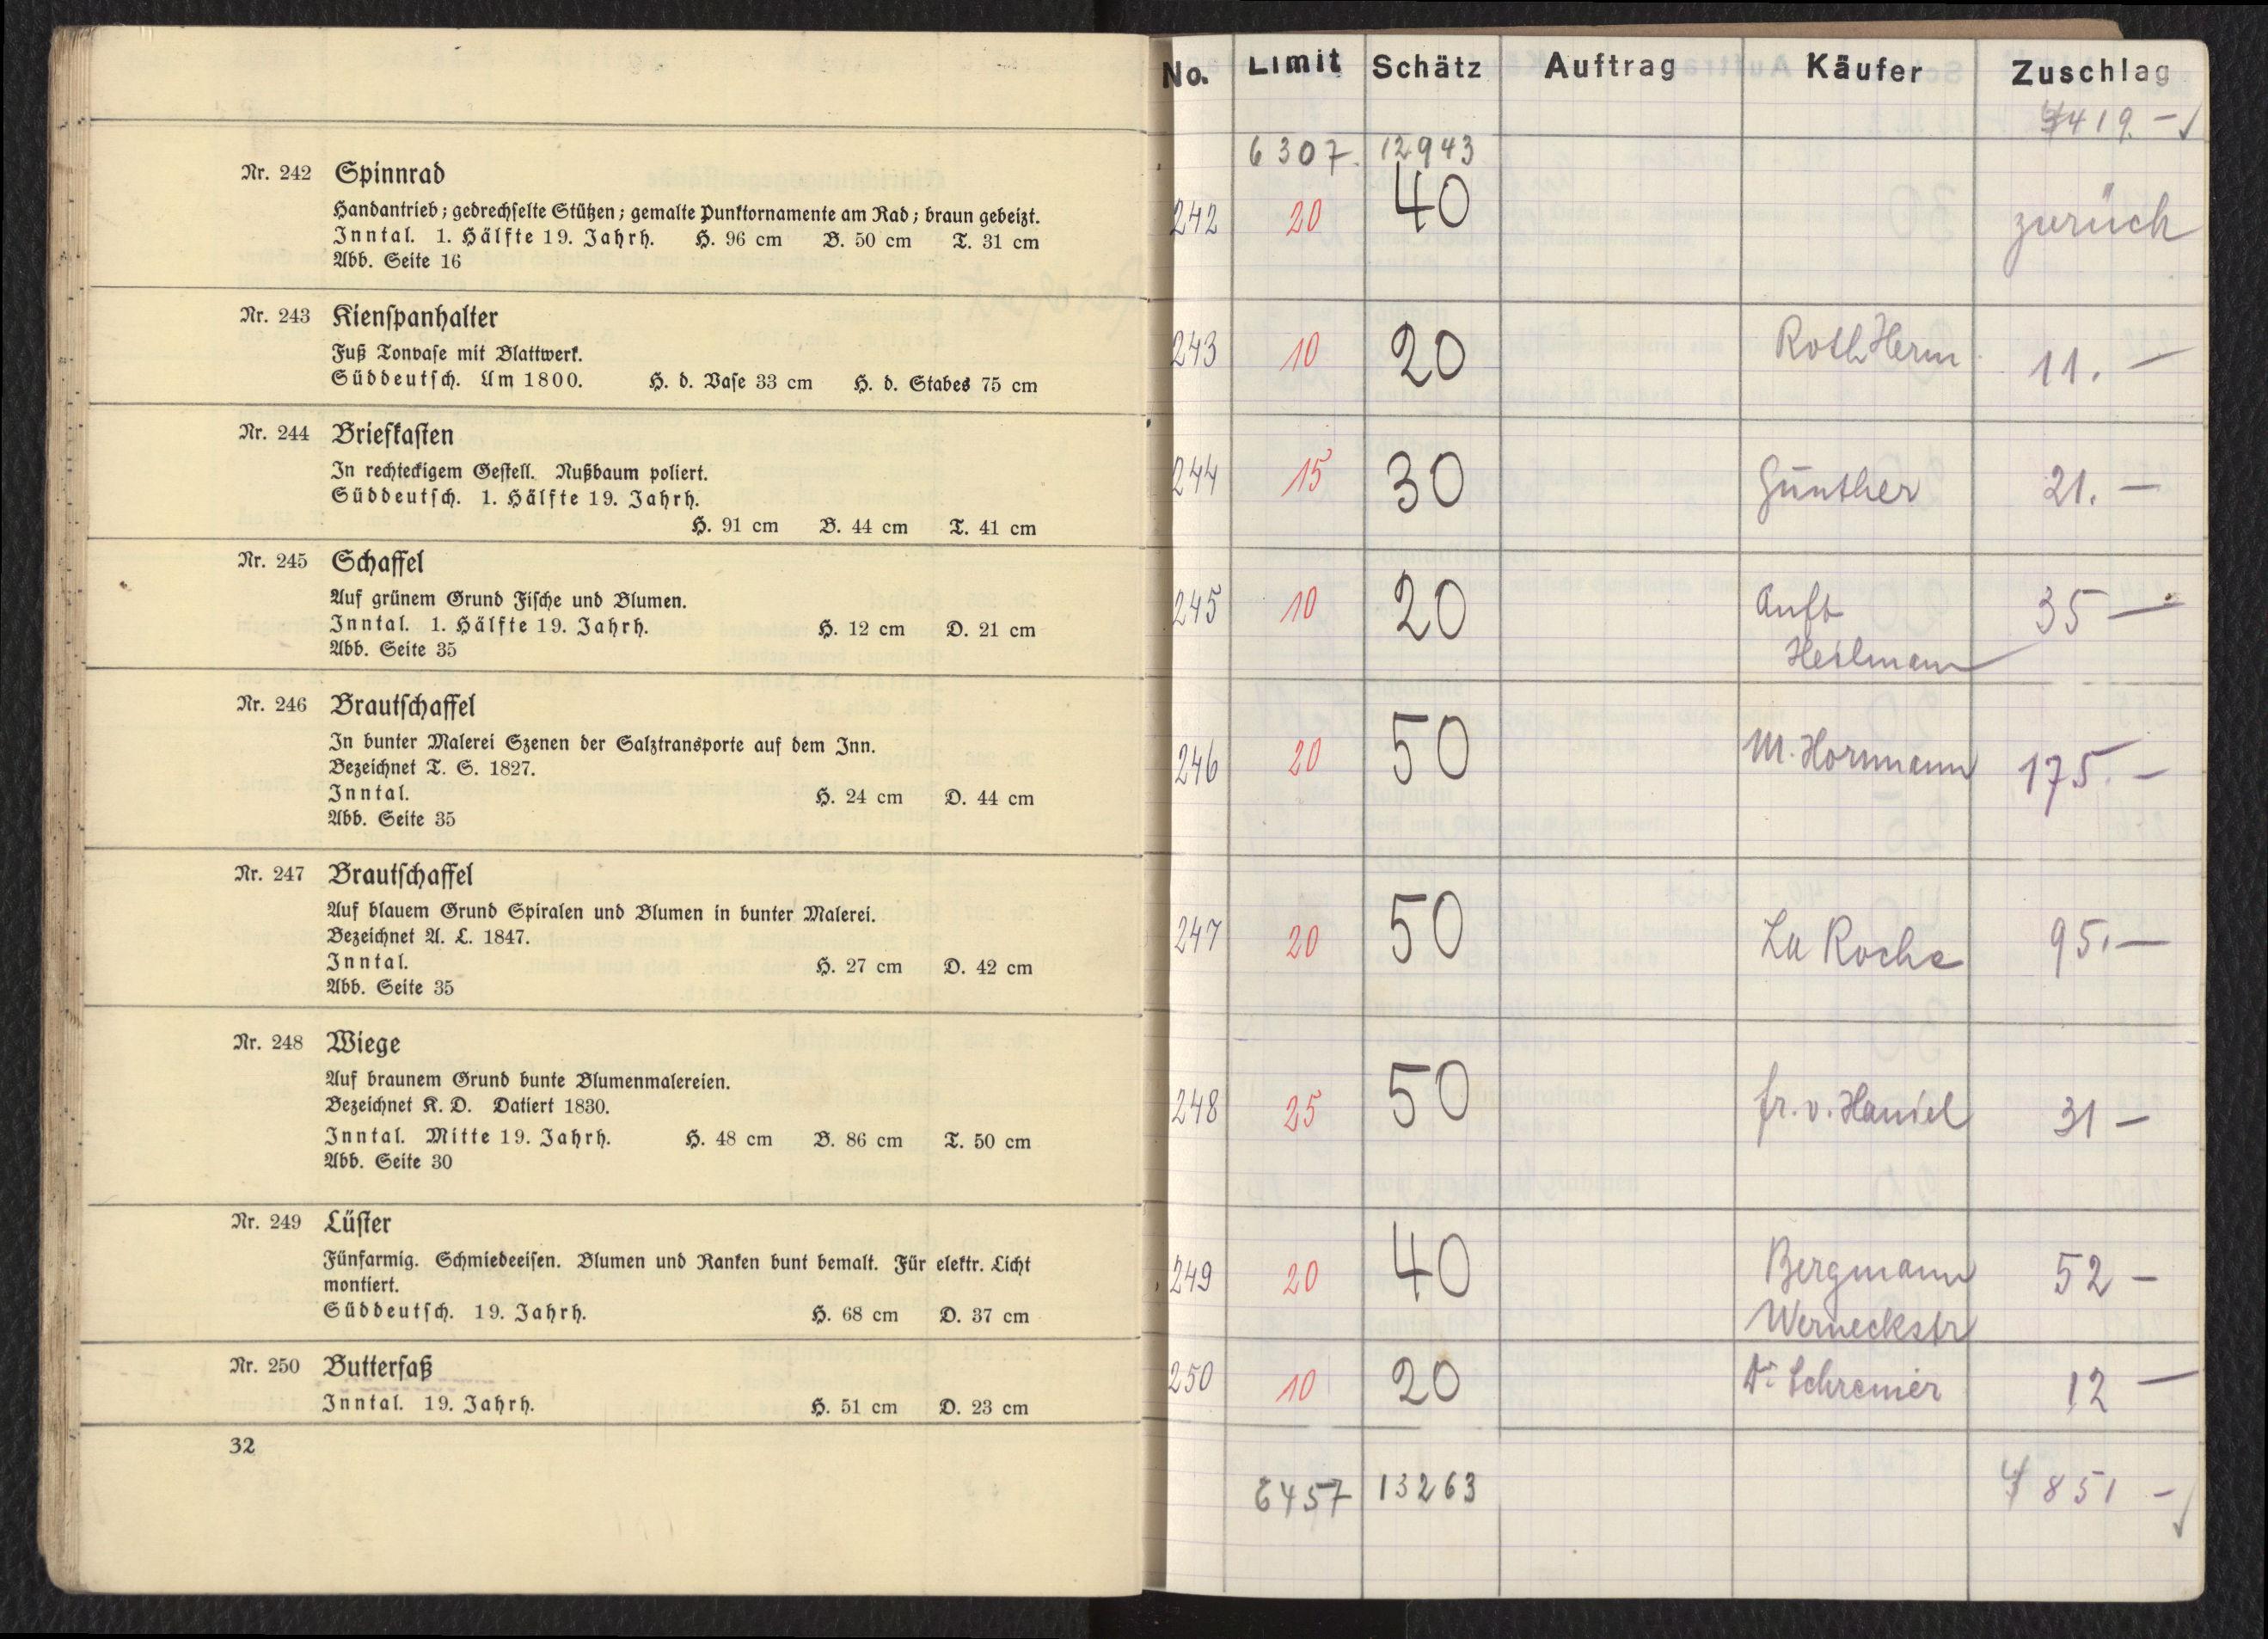 Nr. 242 Spinnrad
Handantrieb; gedrechselte Stützen; gemalte Punktornamente am Rad; braun gebeizt.
Inntal. 1. Hälfte 19. Jahrh. H. 96 cm B. 50 cm T. 31 cm
Abb. Seite 16
Nr. 243 Kienspanhalter
Fuß Tonvase mit Blattwerk.
Süddeutsch. Um 1800. H. d. Vase 33 cm H. d. Stabes 75 cm
Nr. 244 Briefkasten
In rechteckigem Gestell. Nußbaum poliert.
Süddeutsch. 1. Hälfte 19. Jahrh.
H. 91 cm B. 44 cm T. 41 cm
Nr. 245 Schaffel
Auf grünem Grund Fische und Blumen.
Inntal. 1. Hälfte 19. Jahrh. H. 12 cm D. 21 cm
Abb. Seite 35
Nr. 246 Brautschaffel
In bunter Malerei Szenen der Salztransporte auf dem Inn.
Bezeichnet T. S. 1827.
Inntal. H. 24 cm D. 44 cm
Abb. Seite 35
Nr. 247 Brautschaffel
Auf blauem Grund Spiralen und Blumen in bunter Malerei.
Bezeichnet A. L. 1847.
Inntal. H. 27 cm D. 42 cm
Abb. Seite 35
Nr. 248 Wiege
Auf braunem Grund bunte Blumenmalereien.
Bezeichnet K. D. Datiert 1830.
Inntal. Mitte 19. Jahrh. H. 48 cm B. 86 cm T. 50 cm
Abb. Seite 30
Nr. 249 Lüster
Fünfarmig. Schmiedeeisen. Blumen und Ranken bunt bemalt. Für elektr. Licht
montiert.
Süddeutsch. 19. Jahrh. H. 68 cm D. 37 cm
Nr. 250 Butterfaß
Inntal. 19. Jahrh. H. 51 cm D. 23 cm
32
No. Limit Schätz Auftrag Käufer Zuschlag
419.-
6307. 12943
242 20 40 zurück
243 10 20 Roth Herm 11.—
244 15 30 Günther 21.—
245 10 20 Auft 35—
Heilmann
246 20 50 M. Hornmann 175.—
247 20 50 La Roche 95.—
248 25 50 fr. v. Haniel 31—
249 20 40 Bergmann 52—
Werneckstr
250 10 20 Dr Schreiner 12—
6457 13263 851 -